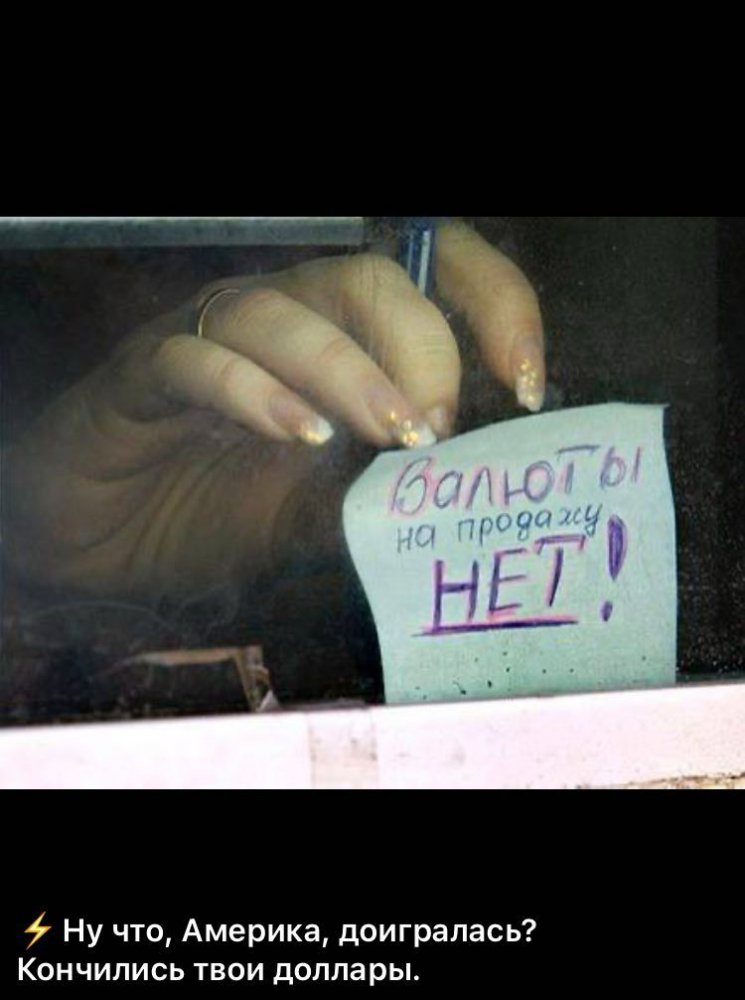 Валюты
на продажу
НЕТ!
⚡ Ну что, Америка, доигралась?
Кончились твои доллары.